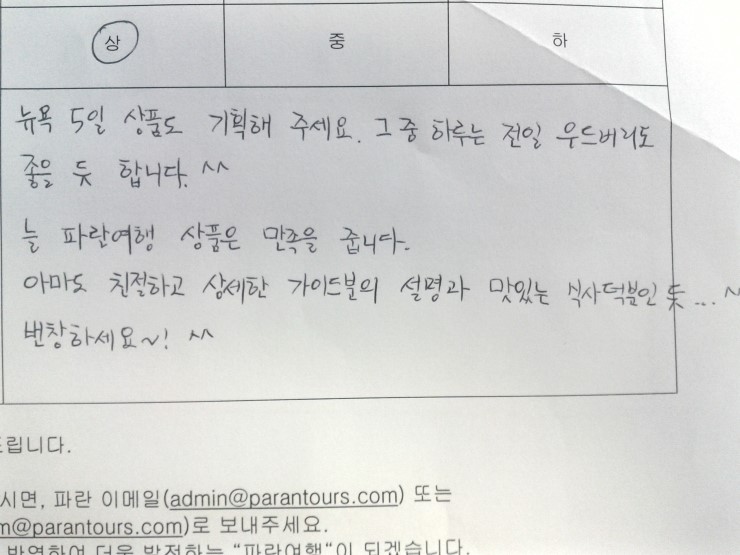 상 중 하
뉴욕 5일 상품도 기획해 주세요. 그 중 하루는 전일 우드버리도
좋을 듯 합니다. ^^
늘 파란여행 상품은 만족을 줍니다.
아마도 친절하고 상세한 가이드분의 설명과 맛있는 식사덕분인 듯... ^
번창하세요~! ^^
드립니다.
시면, 파란 이메일(admin@parantours.com) 또는
m@parantours.com)로 보내주세요.
반영하여 더욱 발전하는 "파란여행"이 되겠습니다.